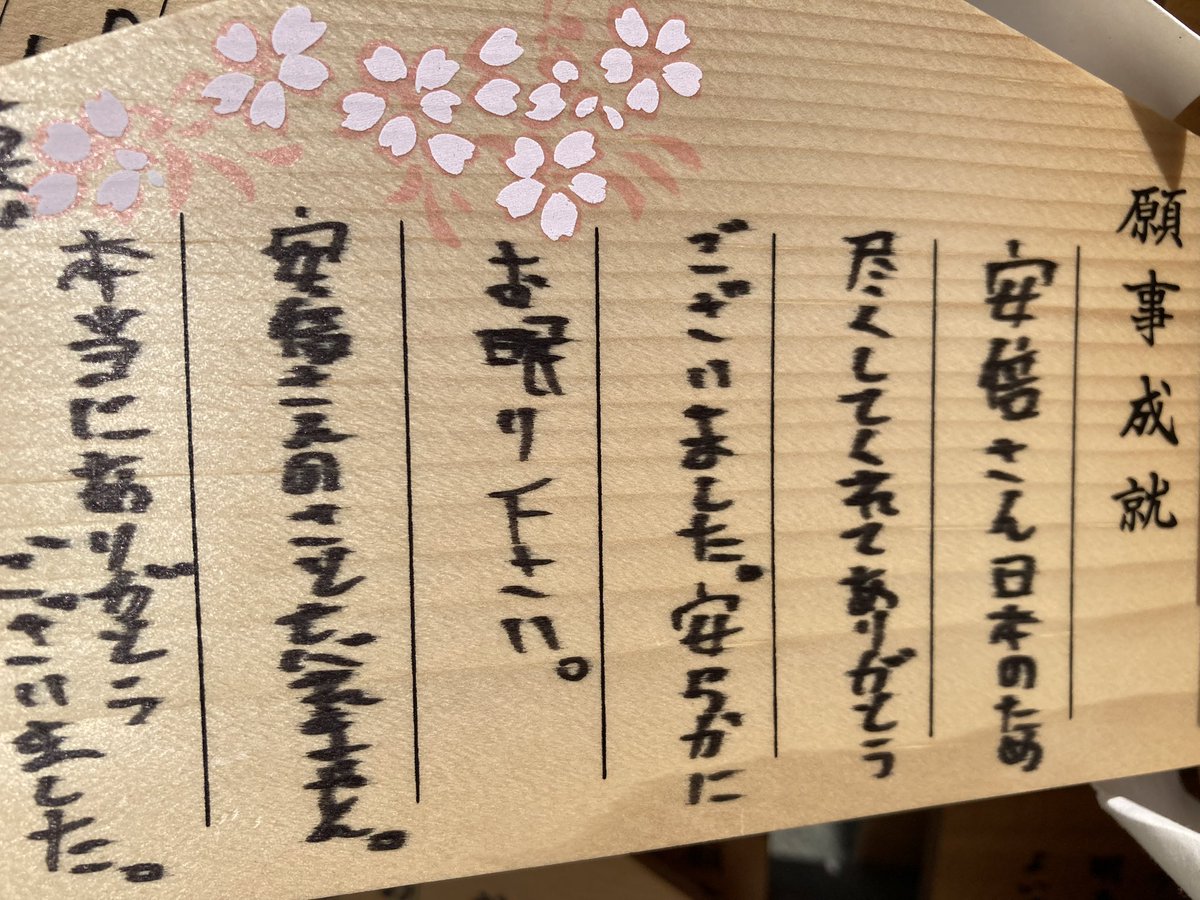 願事成就
安倍さん日本のため
尽くしてくれてありがとう
ございました。安らかに
お眠り下さい。
安倍さんの
本当にありがとう
ございました。